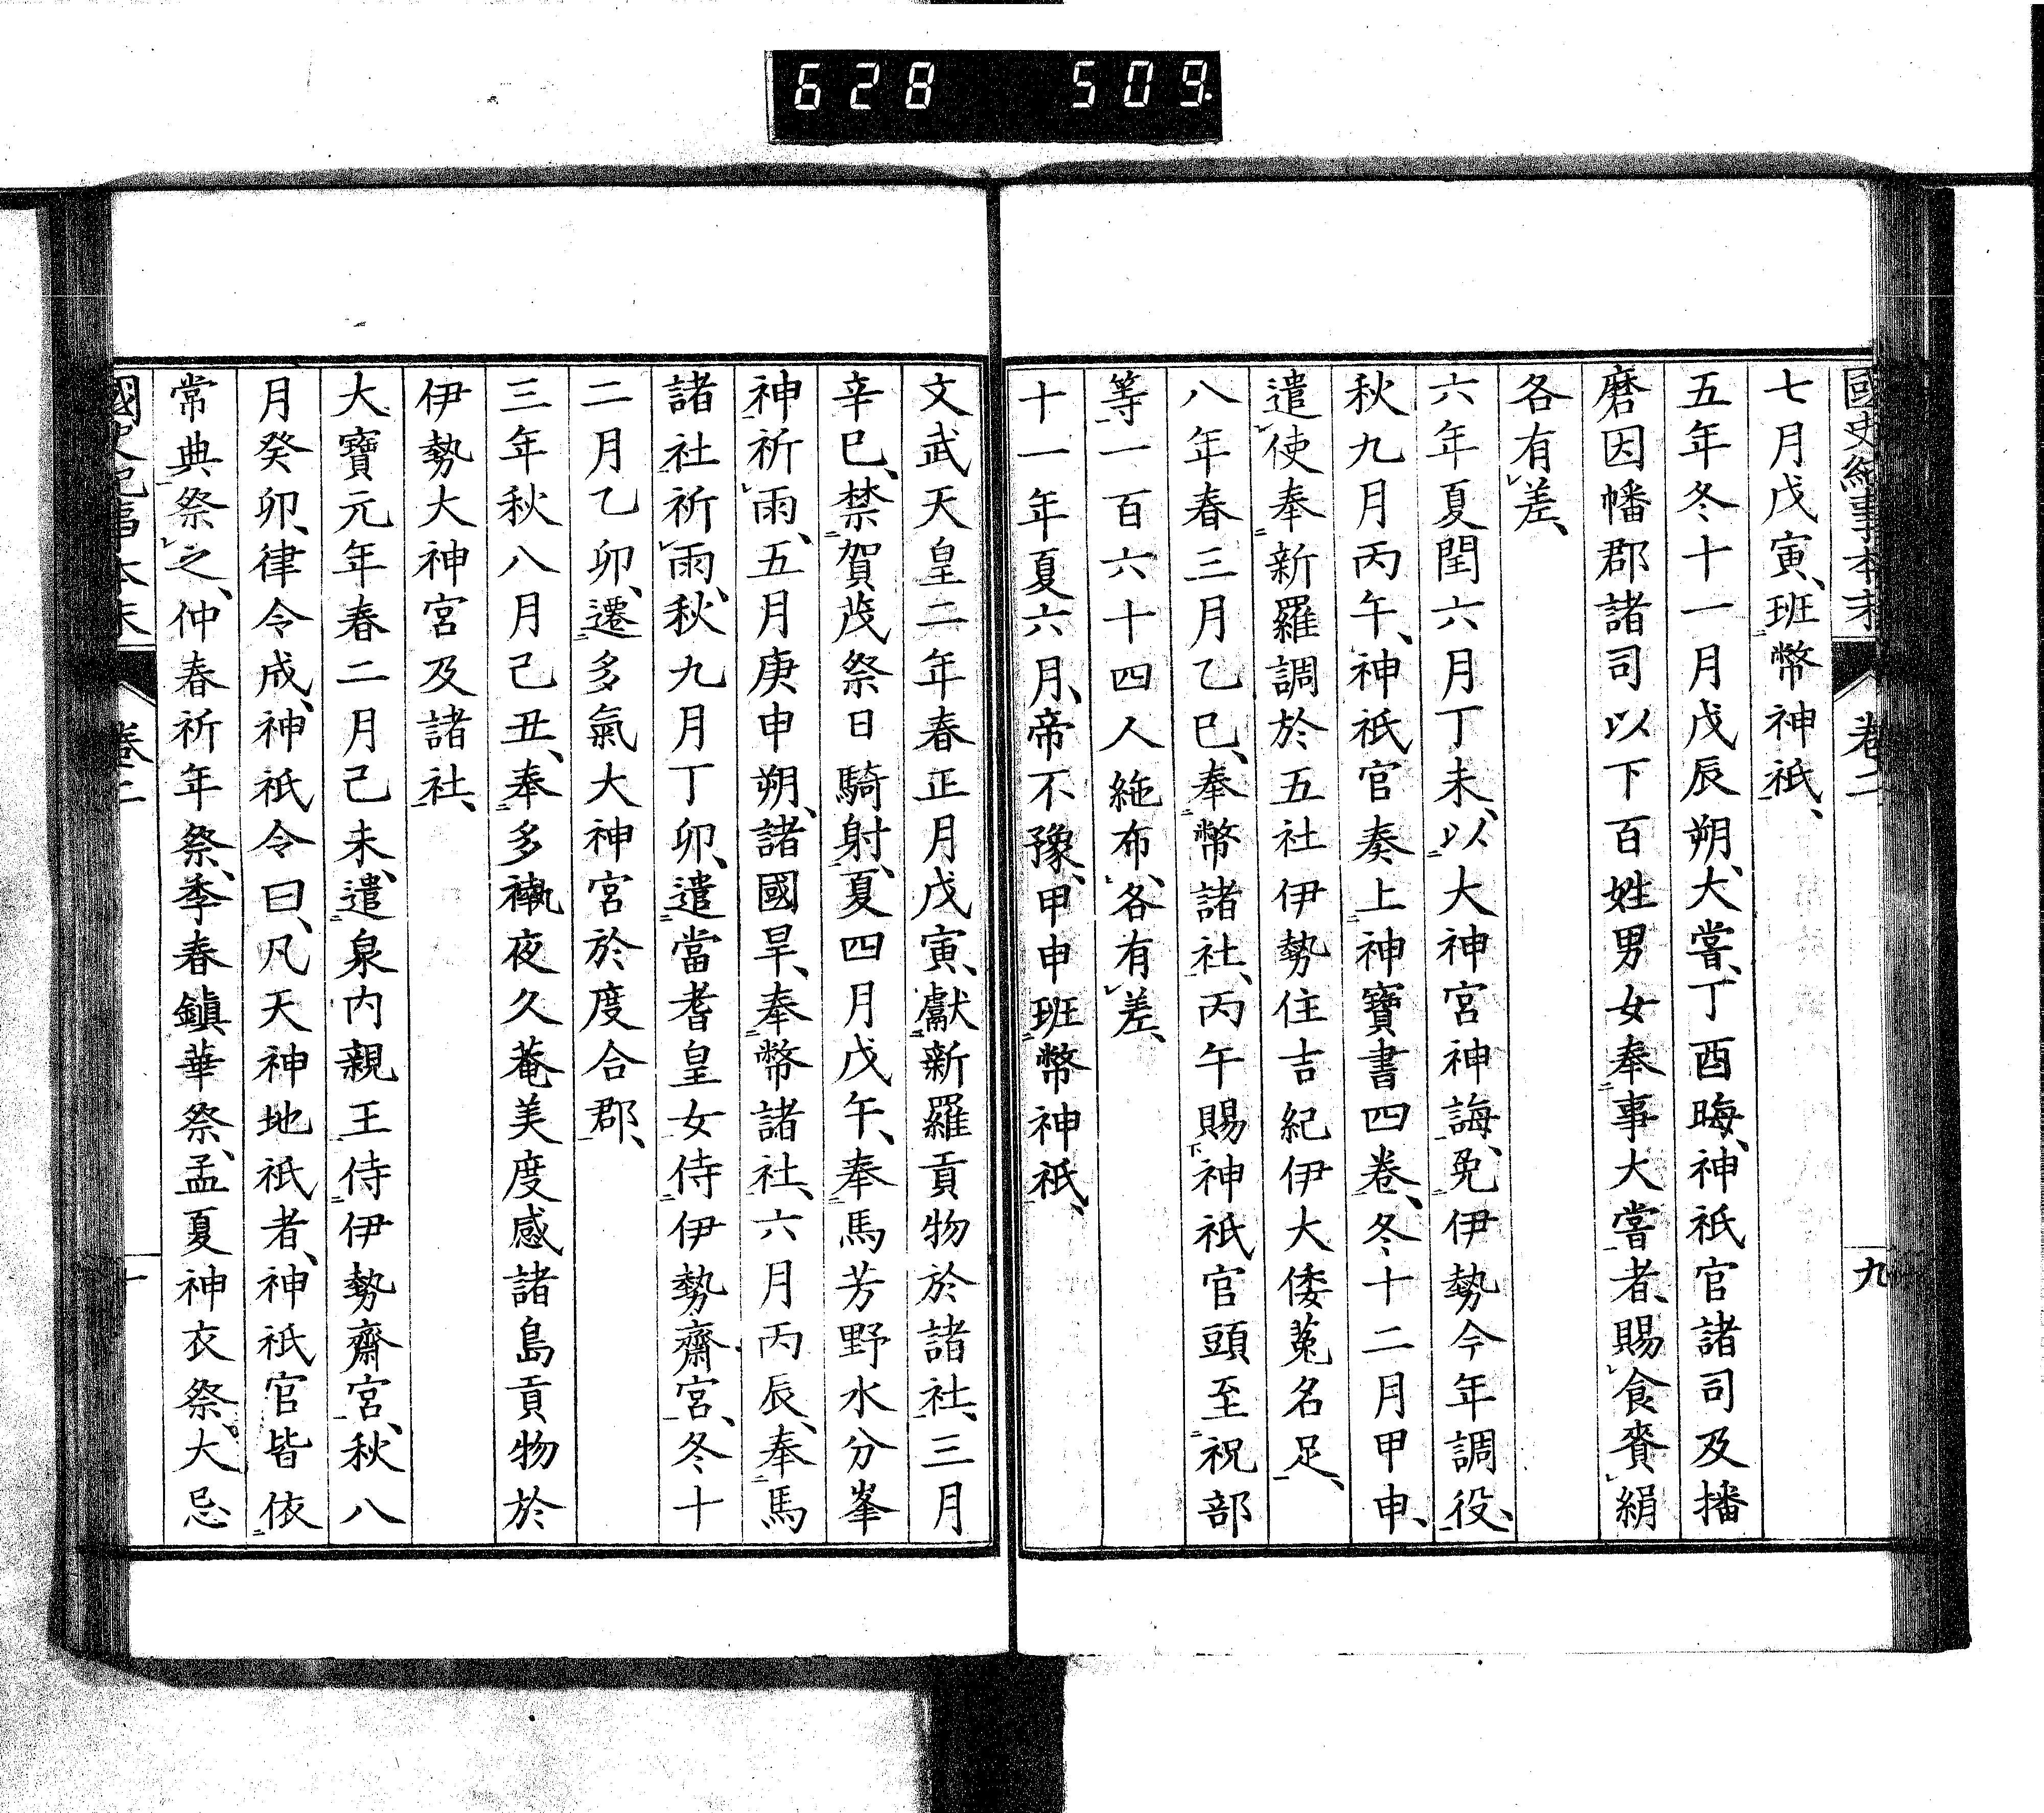 628 509.
國史紀事本末 卷二 九
七月戊寅、班幣神祇、
五年冬十一月戊辰朔、大嘗、丁酉晦、神祇官諸司及播
磨因幡郡諸司以下百姓男女奉事大嘗者、賜食賚絹
各有差、
六年夏閏六月丁未、以大神宮神誨、免伊勢今年調役、
秋九月丙午、神祇官奏上神寶書四卷、冬十二月甲申、
遣使奉新羅調於五社伊勢住吉紀伊大倭菟名足、
八年春三月乙巳、奉幣諸社、丙午賜神祇官頭至祝部
等一百六十四人絁布、各有差、
十一年夏六月、帝不豫、甲申班幣神祇、
文武天皇二年春正月戊寅、獻新羅貢物於諸社、三月
辛巳、禁賀茂祭日騎射、夏四月戊午、奉馬芳野水分峯
神祈雨、五月庚申朔、諸國旱、奉幣諸社、六月丙辰、奉馬
諸社祈雨、秋九月丁卯、遣當耆皇女侍伊勢齋宮、冬十
二月乙卯、遷多氣大神宮於度合郡、
三年秋八月己丑、奉多褹夜久菴美度感諸島貢物於
伊勢大神宮及諸社、
大寶元年春二月己未、遣泉內親王侍伊勢齋宮、秋八
月癸卯、律令成、神祇令曰、凡天神地祇者、神祇官皆依
常典祭之、仲春祈年祭、季春鎮華祭、孟夏神衣祭、大忌
國史紀事本末 卷二 十